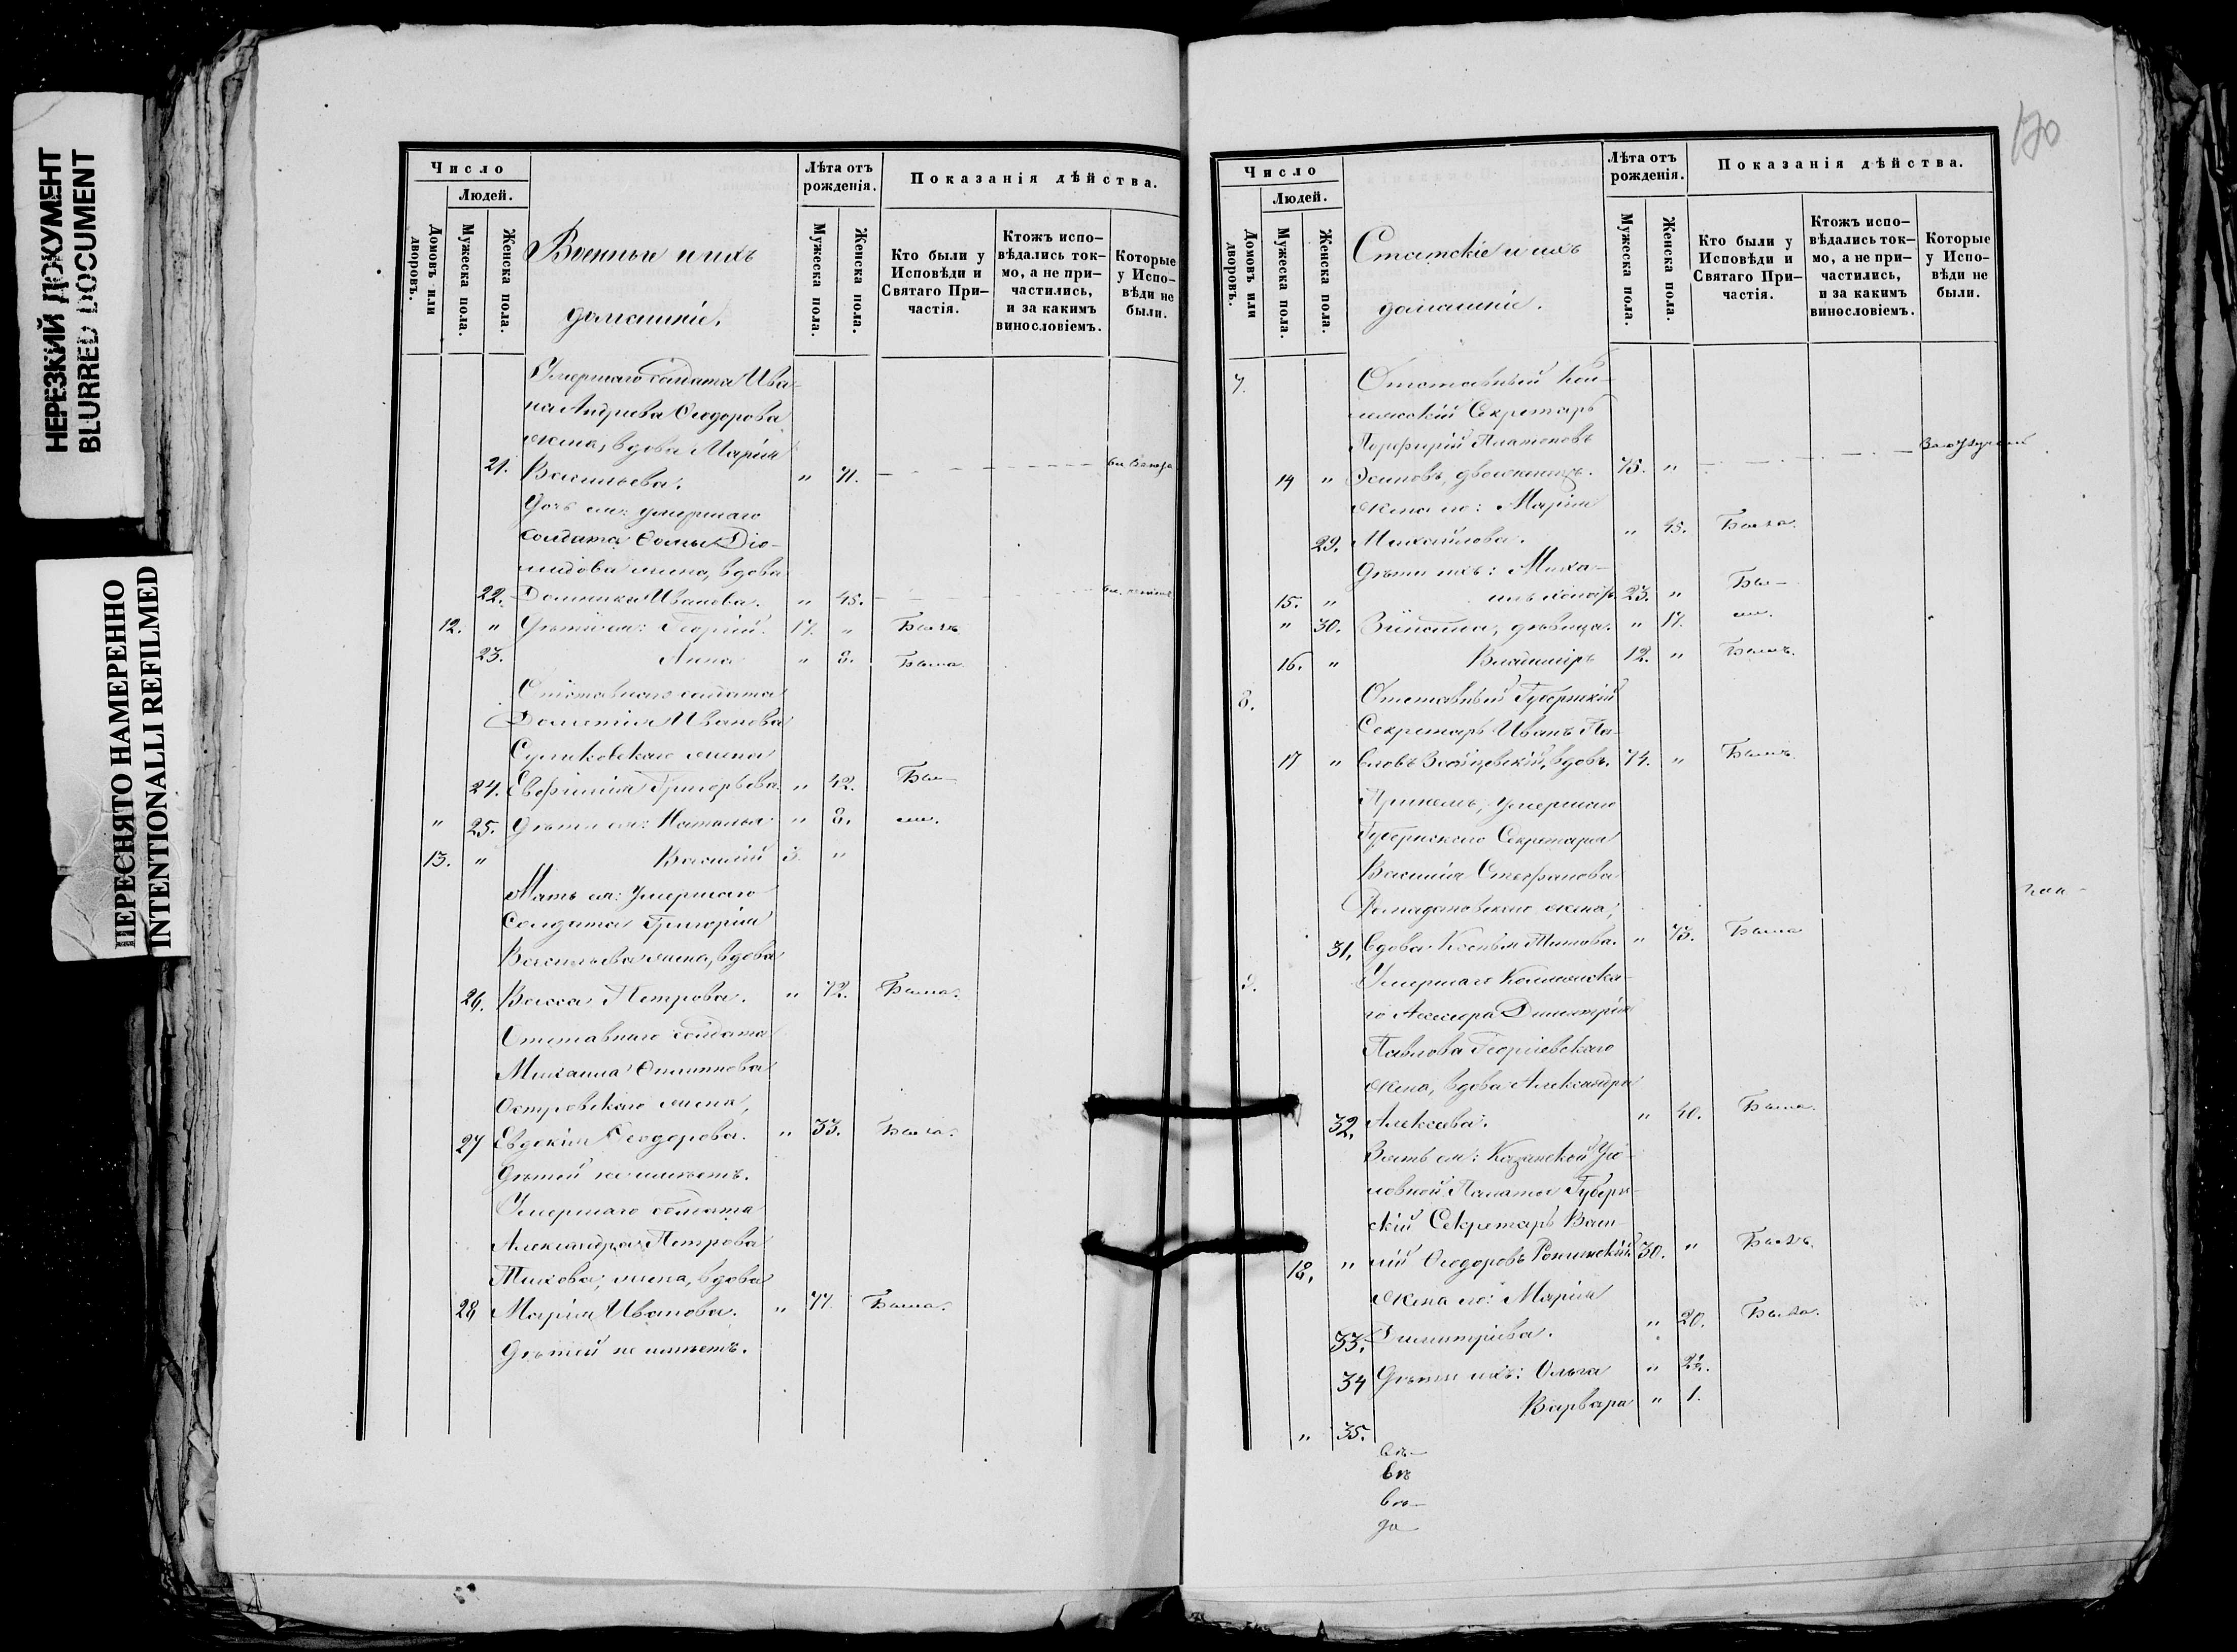 НЕРЕЗКИЙ ДОКУМЕНТ
BLURRED DOCUMENT
ПЕРЕСНЯТО НАМЕРЕННО
INTENTIONALLI REFILMED
Число
Людей.
Домовъ или дворовъ.
Мужеска пола.
Женска пола.
Военные и ихъ
домашніе.
Лѣта отъ рожденія.
Мужеска пола.
Женска пола.
Показанія дѣйства.
Кто были у Исповѣди и Святаго Причастія.
Ктожъ исповѣдались токмо, а не причастились, и за какимъ винословіемъ.
Которые у Исповѣди не были.
Умершаго солдата Ива-
на Андреева Ѳеодорова
жена, вдова Марія
21. Васильева. " 71.
Дочь ея: умершаго
солдата Ѳомы Діо-
мидова жена, вдова
22. Домника Иванова. " 45.
12. " Дѣти ея: Георгій. 17. " Былъ
23. Анна " 8. Была.
Отставнаго солдата
Дометія Иванова
жена
24. Евфимія Григорьева " 42. Бы-
" 25. Дѣти ея: Наталья " 8. ли.
13. " Василій 3. "
Мать ея: Умершаго
Солдата Григорія
Васильева жена, вдова
26. Васса Петрова. " 72. Была.
Отставнаго солдата
Михаила Филиппова
Островскаго жена,
27 Евдокія Ѳеодорова. " 33. Была.
Дѣтей не имѣетъ.
Умершаго солдата
Александра Петрова
жена, вдова
28 Марія Иванова. " 77. Была.
Дѣтей не имѣетъ.
170
Число
Людей.
Домовъ или дворовъ.
Мужеска пола.
Женска пола.
Статскіе и ихъ
домашніе.
Лѣта отъ рожденія.
Мужеска пола.
Женска пола.
Показанія дѣйства.
Кто были у Исповѣди и Святаго Причастія.
Ктожъ исповѣдались токмо, а не причастились, и за какимъ винословіемъ.
Которые у Исповѣди не были.
7. Отставный Кол-
лежскій Секретарь
Порфирій Платоновъ
14 " Осиповъ, двоеженецъ. 75. "
Жена его: Марія
29. Михайлова. " 45. Была.
Дѣти ихъ: Миха-
15. " илъ 23. " Бы-
" 30. дѣвица. " 17. ли.
16. " Владиміръ 12. " Былъ.
8. Отставный Губернскій
Секретарь Иванъ Па-
17 " вловъ вдовъ. 74. " Былъ.
умершаго
Губернскаго Секретаря
Василія Стефанова
жена,
31. вдова Ксенія Титова. " 73. Была
9. Умершаго Коллежска-
го Ассесора Димитрія
Павлова Георгіевскаго
жена, вдова Александра
32. Алексѣева. " 40. Была.
Зять ея: Казанской Уго-
ловной Палаты Губерн-
скій Секретарь Васи-
18. " лій Ѳеодоровъ 30. " Былъ.
Жена его: Марія
33. Димитріева. " 20. Была.
34 Дѣти ихъ: Ольга " 2½.
" 35. Варвара " 1.